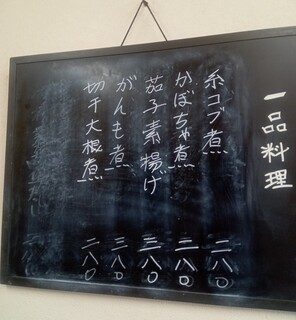 一品料理
糸コブ煮 二八〇
かぼちゃ煮 三八〇
茄子素揚げ 三八〇
がんも煮 三八〇
切干大根煮 二八〇